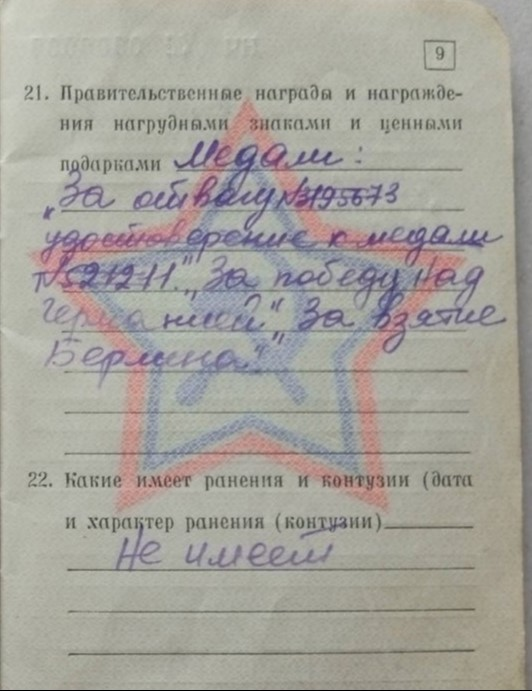 9
21. Правительственные награды и награжде-
ния нагрудными знаками и ценными
подарками Медали:
„За отвагу №3195673
удостоверение к медали
№521211.„За победу над
Германией“ За взятие
Берлина“
22. Какие имеет ранения и контузии (дата
и характер ранения (контузии)
Не имеет